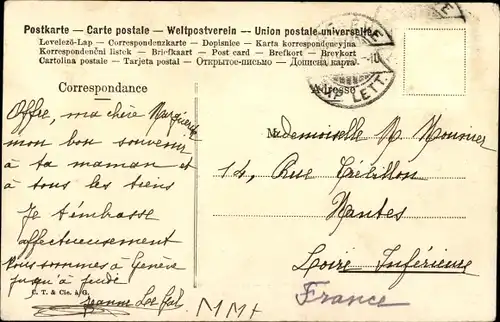 Postkarte — Carte postale — Weltpostverein — Union postale universelle
Levelező-Lap — Correspondenzkarte — Dopisnice — Karta korrespondencyjna
Korrespondenční listek — Briefkaart — Post card — Brefkort — Brevkort
Cartolina postale — Tarjeta postal — Открытое-письмо — Дописна карта.
Correspondance
Adresse
LETT.
Offre, ma chère
mon bon souvenir
à ta maman et
à tous les tiens
Je t'embrasse
affectueusement
nous sommes à Genève
jusqu'à jeudi
C. T. & Cie. à G.
Jeanne
Mademoiselle M. Mounier
14, Rue Crébillon
Nantes
Loire Inférieure
France